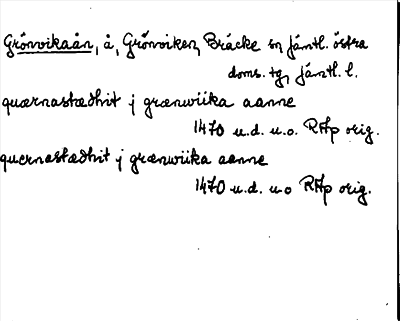 Grönvikaån, å, Grönviken, Bräcke sn, Jämtl. östra
doms. tg, Jämtl. l.
quærnastædhit j grænwiika aanne
1470 u.d. u.o. RAp orig.
quernastædhit j grænwiika aanne
1470 u.d. u.o RAp orig.